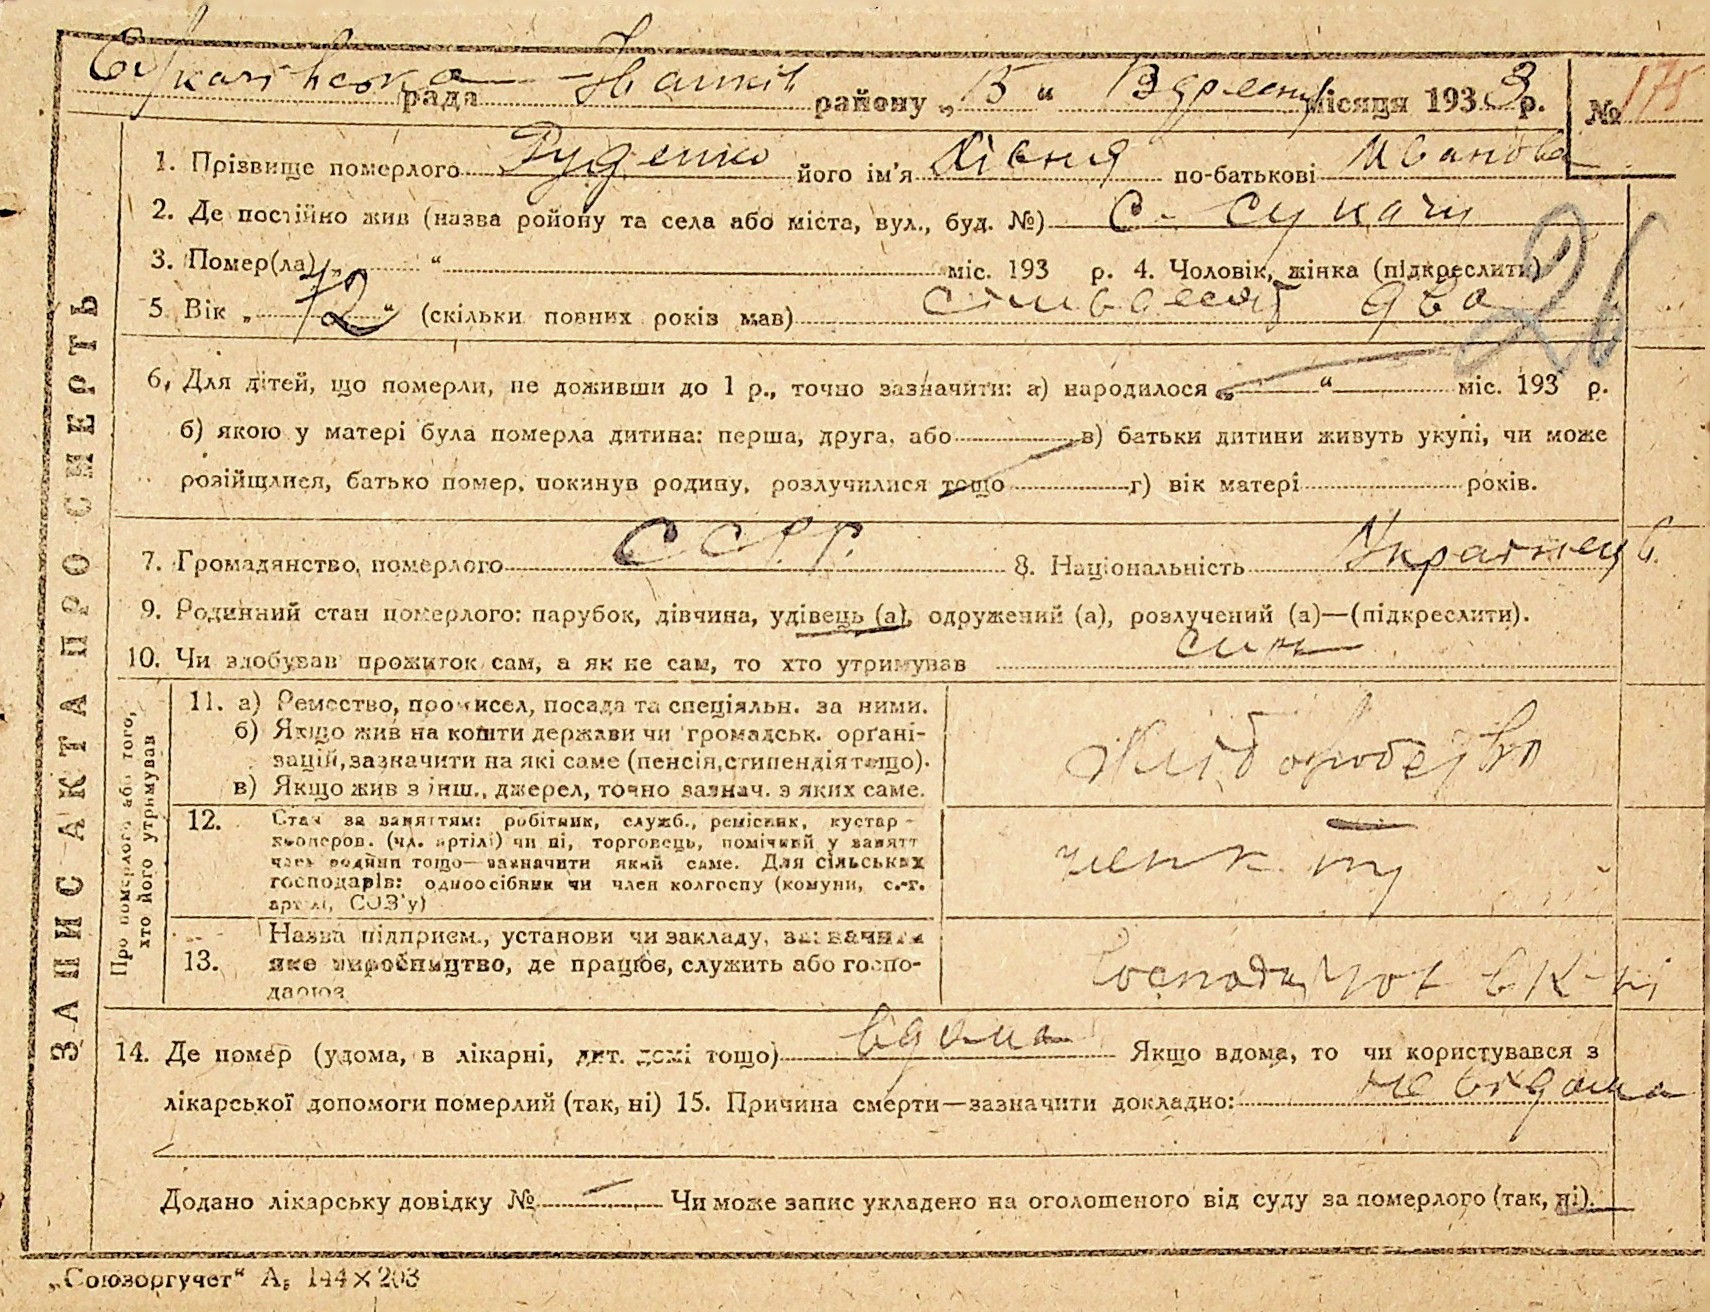 Сукачівська рада Іванків району „15“ Вересня місяця 1933 р. № 175
1. Прізвище померлого Руденко його ім'я Хівня по-батькові Иванова
2. Де постійно жив (назва ройону та села або міста, вул., буд. №) с. Сукачи
3. Помер(ла) „ “ міс. 193 р. 4. Чоловік, жінка (підкреслити)
26
5 Вік „72“ (скільки повних років мав) сімьдесят два
6. Для дітей, що померли, не доживши до 1 р., точно зазначити: а) народилося „ — “ міс. 193 р.
б) якою у матері була померла дитина: перша, друга, або в) батьки дитини живуть укупі, чи може
розійшлися, батько помер, покинув родину, розлучилися тощо г) вік матері років.
7. Громадянство, померлого ССРР. 8. Національність
9. Родинний стан померлого: парубок, дівчина, удівець (а), одружений (а), розлучений (а)—(підкреслити).
10. Чи здобував прожиток сам, а як не сам, то хто утримував син
ЗАПИС АКТА ПРО СМЕРТЬ
Про померлого або того,
хто його утримував
11. а) Ремество, промисел, посада та спеціяльн. за ними.
б) Якщо жив на кошти держави чи громадськ. органі-
зацій, зазначити на які саме (пенсія, стипендія тощо).
в) Якщо жив з інш., джерел, точно зазнач. з яких саме.
Хліборобство
12. Стан за заняттям: робітник, служб., ремісник, кустар -
кооперов. (чл. артілі) чи ні, торговець, помічний у занятт
член родини тощо—зазначити який саме. Для сільських
господарів: одноосібник чи член колгоспу (комуни, с.-г.
артілі, СОЗ'у)
член к.
13. Назва підприєм., установи чи закладу, зазначити
яке виробництво, де працює, служить або госпо-
дарює
14. Де помер (удома, в лікарні, дит. домі тощо) вдома Якщо вдома, то чи користувався з
лікарської допомоги померлий (так, ні) 15. Причина смерти—зазначити докладно: не відома
Додано лікарську довідку № — Чи може запис укладено на оголошеного від суду за померлого (так, ні).
„Союзоргучет“ А₅ 144×203